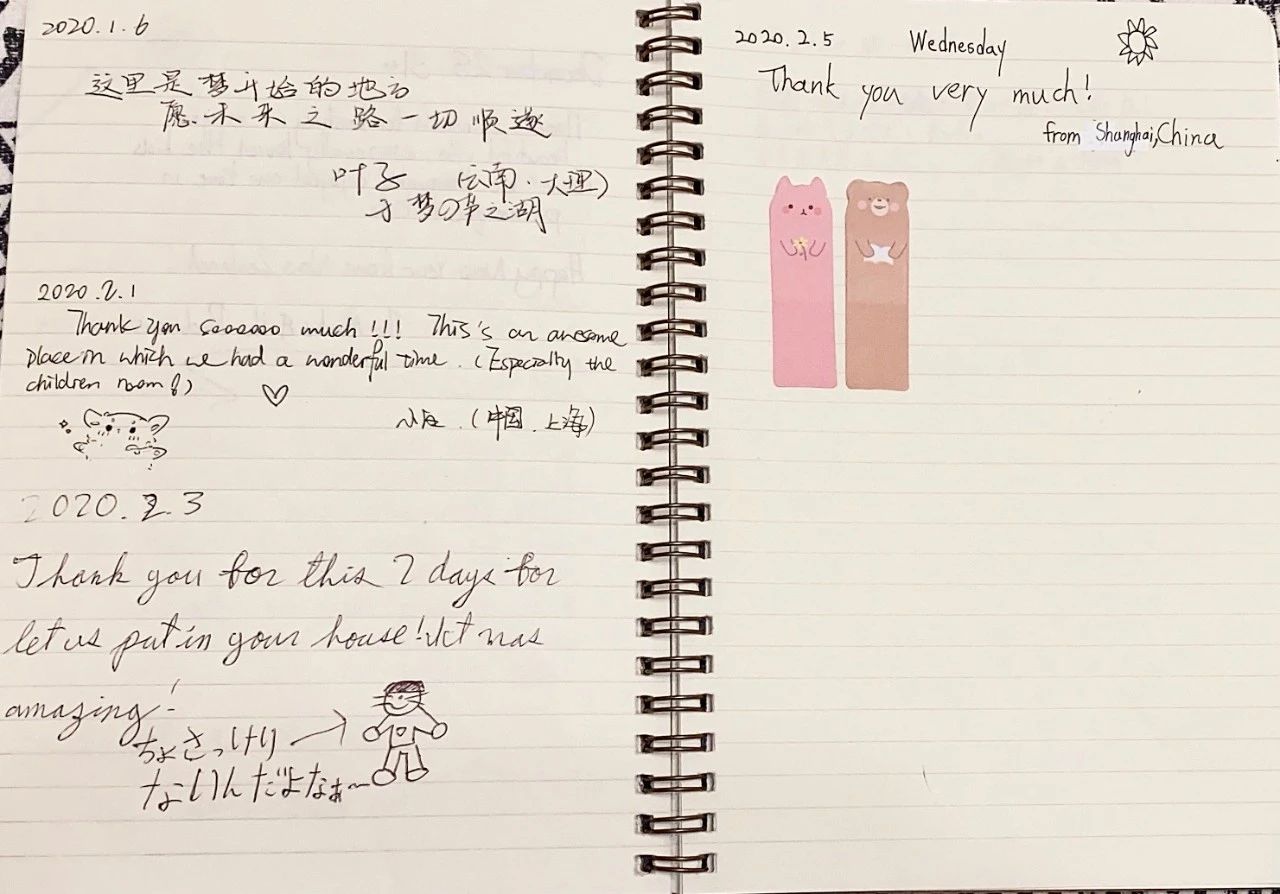 2020.1.6
这里是梦开始的地方
愿未来之路一切顺遂
叶子 (云南·大理)
于梦の草之湖
2020.2.1
Thank you sooooooo much !!! This's an awesome
place in which we had a wonderful time. (Especially the
children room!)
(中国.上海)
2020.2.3
Thank you for this 2 days for
let us put in your house! It was
amazing!
ちょさっけり
ないんだよなぁ~
2020.2.5 Wednesday
Thank you very much!
from Shanghai,China